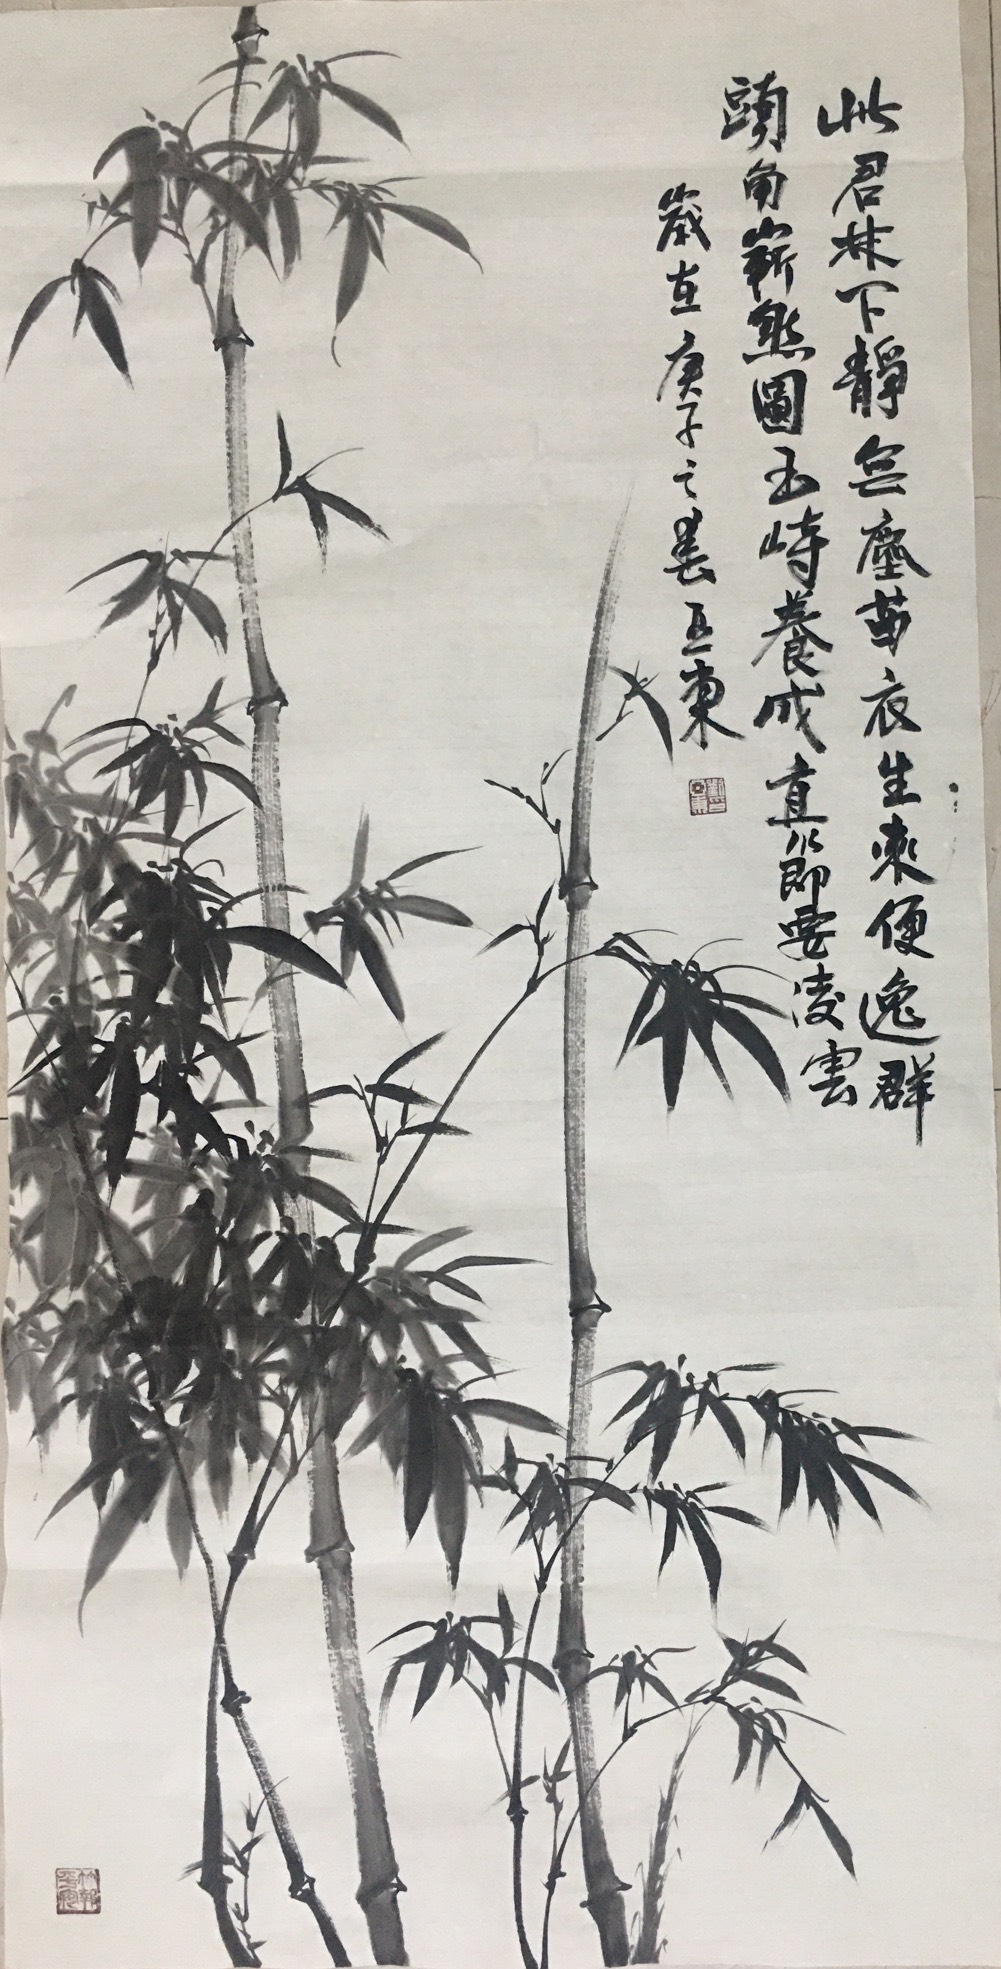 此君林下靜無塵苗衣生來便逸群
頭角嶄然圖玉峙養成直節要凌雲
歲在庚子之暮 東